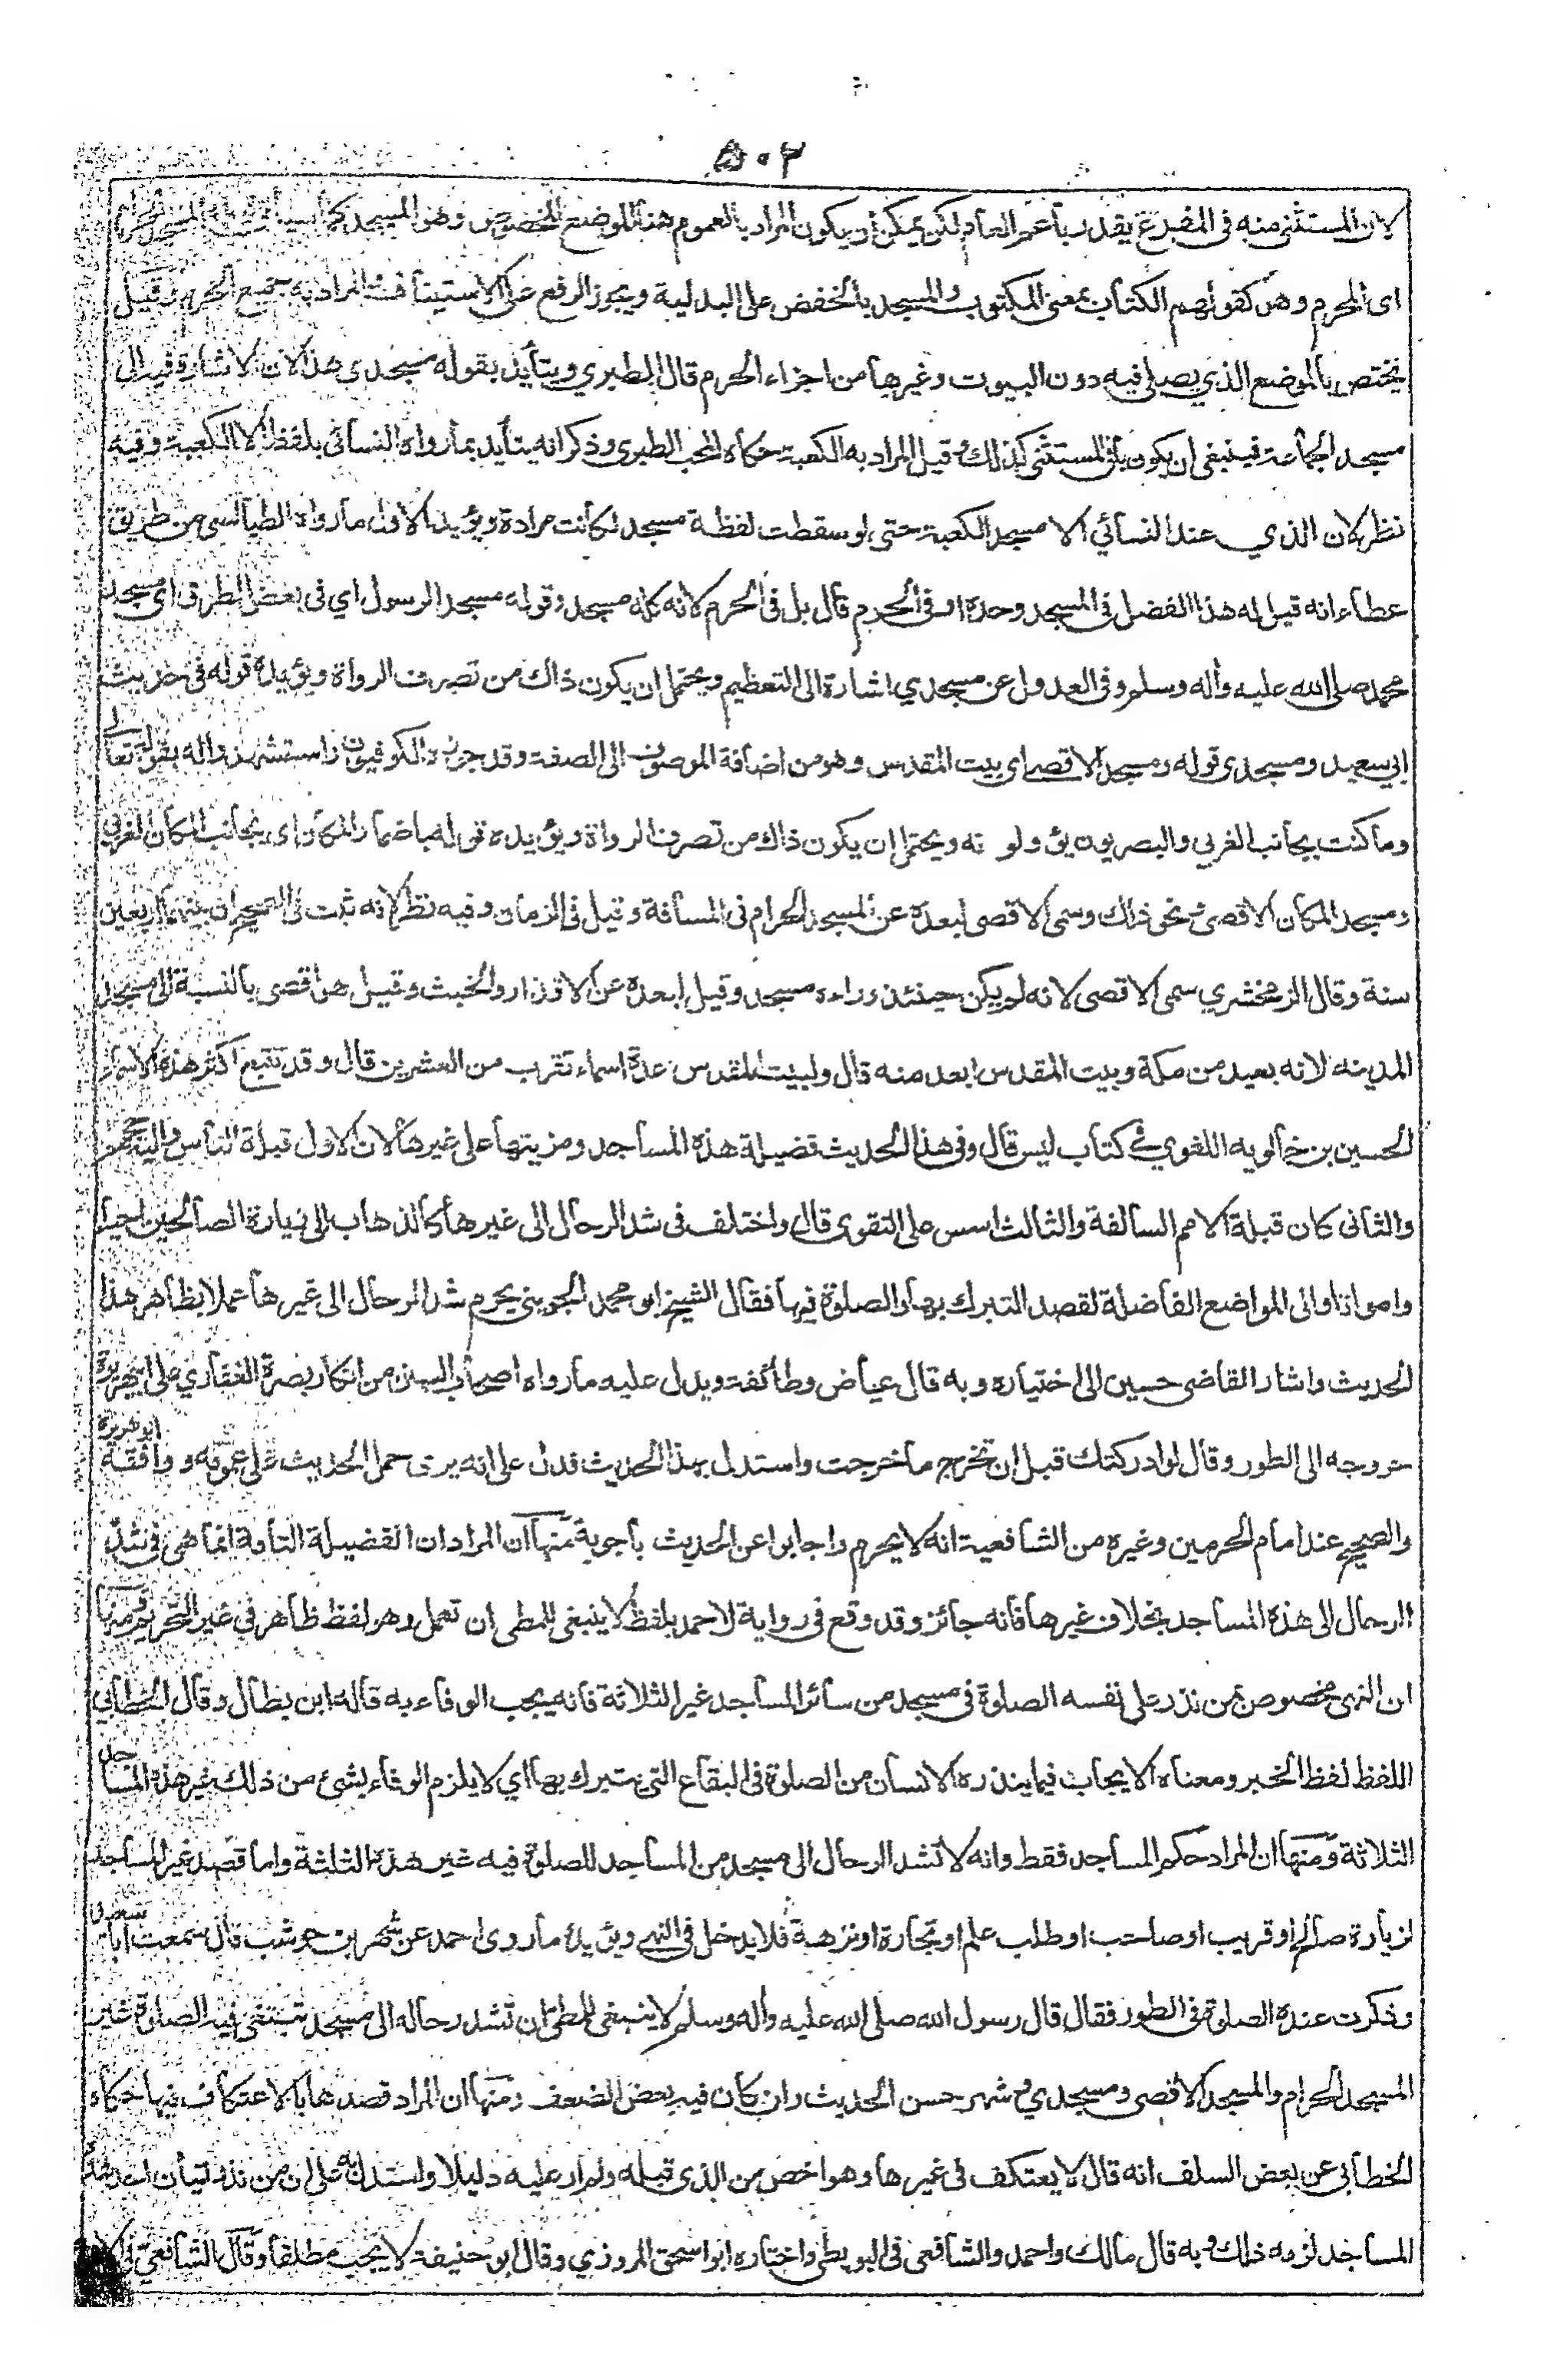 ٥٠٢
لان المستثنى منه فى المفرغ يقدر باعم العام لكن يمكن ان يكون المراد بالعموم هنا الموضع المخصوص وهو المسجد كما سيأتى قوله المسجد الحرام
اى المحرم وهو كقولهم الكتاب بمعنى المكتوب والمسجد بالخفض على البدلية ويجوز الرفع على الاستيناف المراد به جميع الحرم وقيل
يختص بالموضع الذي يصلى فيه دون البيوت وغيرها من اجزاء الحرم قال الطبري ويتأيد بقوله مسجدى هذا لان الاشارة فيه الى
مسجد الجماعة فينبغى ان يكون المستثنى كذلك وقيل المراد به الكعبة حكاه المحب الطبرى وذكر انه يتأيد بما رواه النسائى بلفظ الا الكعبة وفيه
نظر لان الذي عند النسائي الا مسجد الكعبة حتى لو سقطت لفظة مسجد لكانت مرادة ويؤيد الاول ما رواه الطيالسى من طريق
عطاء انه قيل له هذا الفضل فى المسجد وحده او فى الحرم قال بل فى الحرم لانه كله مسجد وقوله مسجد الرسول اي فى بعض الطرق اى مسجد
محمد صلى الله عليه وأله وسلم وفى العدول عن مسجدي اشارة الى التعظيم ويحتمل ان يكون ذاك من تصرف الرواة ويؤيده قوله فى حديث
ابي سعيد ومسجدى قوله ومسجد الاقصى اى بيت المقدس وهو من اضافة الموصوف الى الصفة وقد جوزه الكوفيون واستشهدوا له بقوله تعالى
وما كنت بجانب الغربي والبصريون يؤولونه ويحتمل ان يكون ذاك من تصرف الرواة ويؤيده قوله باضمار المكان اى بجانب المكان الغربي
ومسجد المكان الاقصى ونحو ذلك وسمى الاقصى لبعده عن المسجد الحرام فى المسافة وقيل فى الزمان وفيه نظر لانه ثبت فى الصحيح ان بينهما اربعين
سنة وقال الزمخشري سمى الاقصى لانه لم يكن حينئذ وراءه مسجد وقيل لبعده عن الاقذار والخبث وقيل هو اقصى بالنسبة الى مسجد
المدينه لانه بعيد من مكة وبيت المقدس ابعد منه قال ولبيت المقدس عدة اسماء تقرب من العشرين قال وقد تتبع اكثر هذه الاسماء
الحسين بن خالويه اللغوي في كتاب ليس قال وفى هذا الحديث فضيلة هذه المساجد ومزيتها على غيرها لان الاول قبلة الناس واليه حجهم
والثانى كان قبلة الامم السالفة والثالث اسس على التقوى قال واختلف فى شد الرحال الى غيرها كالذهاب الى زيارة الصالحين احياء
وامواتا والى المواضع الفاضلة لقصد التبرك بها والصلوة فيها فقال الشيخ ابو محمد الجوينى يحرم شد الرحال الى غيرها عملا بظاهر هذا
الحديث واشار القاضى حسين الى اختياره وبه قال عياض وطائفة ويدل عليه ما رواه اصحاب السنن من انكار بصرة الغفاري على ابى هريرة
خروجه الى الطور وقال لو ادركتك قبل ان تخرج ما خرجت واستدل بهذا الحديث فدل على انه يرى حمل الحديث على عمومه ووافقه ابو هريرة
والصحيح عند امام الحرمين وغيره من الشافعية انه لا يحرم واجابوا عن الحديث باجوبة منها ان المراد ان الفضيلة التامة انما هى فى شد
الرحال الى هذه المساجد بخلاف غيرها فانه جائز وقد وقع فى رواية لاحمد بلفظ لا ينبغى للمطى ان تعمل وهو لفظ ظاهر في غير التحريم ومنها
ان النهى مخصوص بمن نذر على نفسه الصلوة فى مسجد من سائر المساجد غير الثلاثة فانه يجب الوفاء به قاله ابن بطال وقال الخطابي
اللفظ لفظ الخبر ومعناه الايجاب فيما ينذره الانسان من الصلوة فى البقاع التى يتبرك بها اي لا يلزم الوفاء بشئ من ذلك غير هذه المساجد
الثلاثة ومنها ان المراد حكم المساجد فقط وانه لا تشد الرحال الى مسجد من المساجد للصلوة فيه غير هذه الثلثة واما قصد غير المساجد
لزيارة صالح او قريب او صاحب او طلب علم او تجارة او نزهة فلا يدخل فى النهى ويؤيده ما روى احمد عن شهر بن حوشب قال سمعت ابا سعيد
وذكرت عنده الصلوة فى الطور فقال قال رسول الله صلى الله عليه واله وسلم لا ينبغى للمطى ان تشد رحاله الى مسجد تبتغى فيه الصلوة غير
المسجد الحرام والمسجد الاقصى ومسجدي وشهر حسن الحديث وان كان فيه بعض الضعف ومنها ان المراد قصدها بالاعتكاف فيها حكاه
الخطابى عن بعض السلف انه قال لا يعتكف فى غيرها وهو اخص من الذى قبله ولم ار عليه دليلا واستدل به على ان من نذر اتيان احد هذه
المساجد لزمه ذلك وبه قال مالك واحمد والشافعى فى البويطى واختاره ابو اسحق المروزي وقال ابو حنيفة لا يجب مطلقا وقال الشافعي فى الا